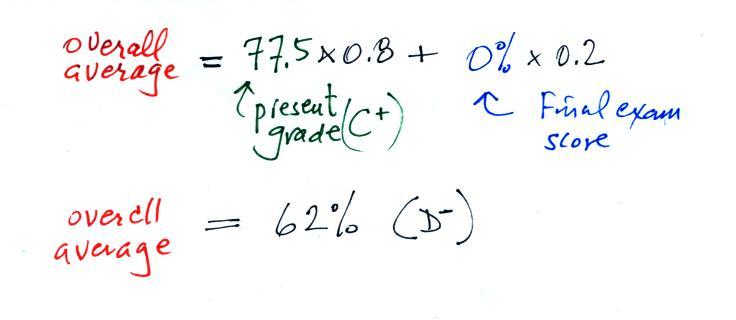 overall
average = 77.5 x 0.8 + 0% x 0.2
present
grade (C+)
Final exam
score
overall
average = 62% (D-)